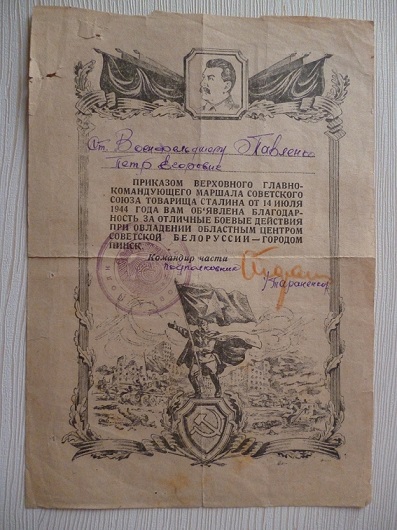 Ст. Военфельдшеру Павленко
Петр Егорович
ПРИКАЗОМ ВЕРХОВНОГО ГЛАВНО-
КОМАНДУЮЩЕГО МАРШАЛА СОВЕТСКОГО
СОЮЗА ТОВАРИЩА СТАЛИНА ОТ 14 ИЮЛЯ
1944 ГОДА ВАМ ОБ'ЯВЛЕНА БЛАГОДАР-
НОСТЬ ЗА ОТЛИЧНЫЕ БОЕВЫЕ ДЕЙСТВИЯ
ПРИ ОВЛАДЕНИИ ОБЛАСТНЫМ ЦЕНТРОМ
СОВЕТСКОЙ БЕЛОРУССИИ — ГОРОДОМ
ПИНСК.
Командир части
Подполковник